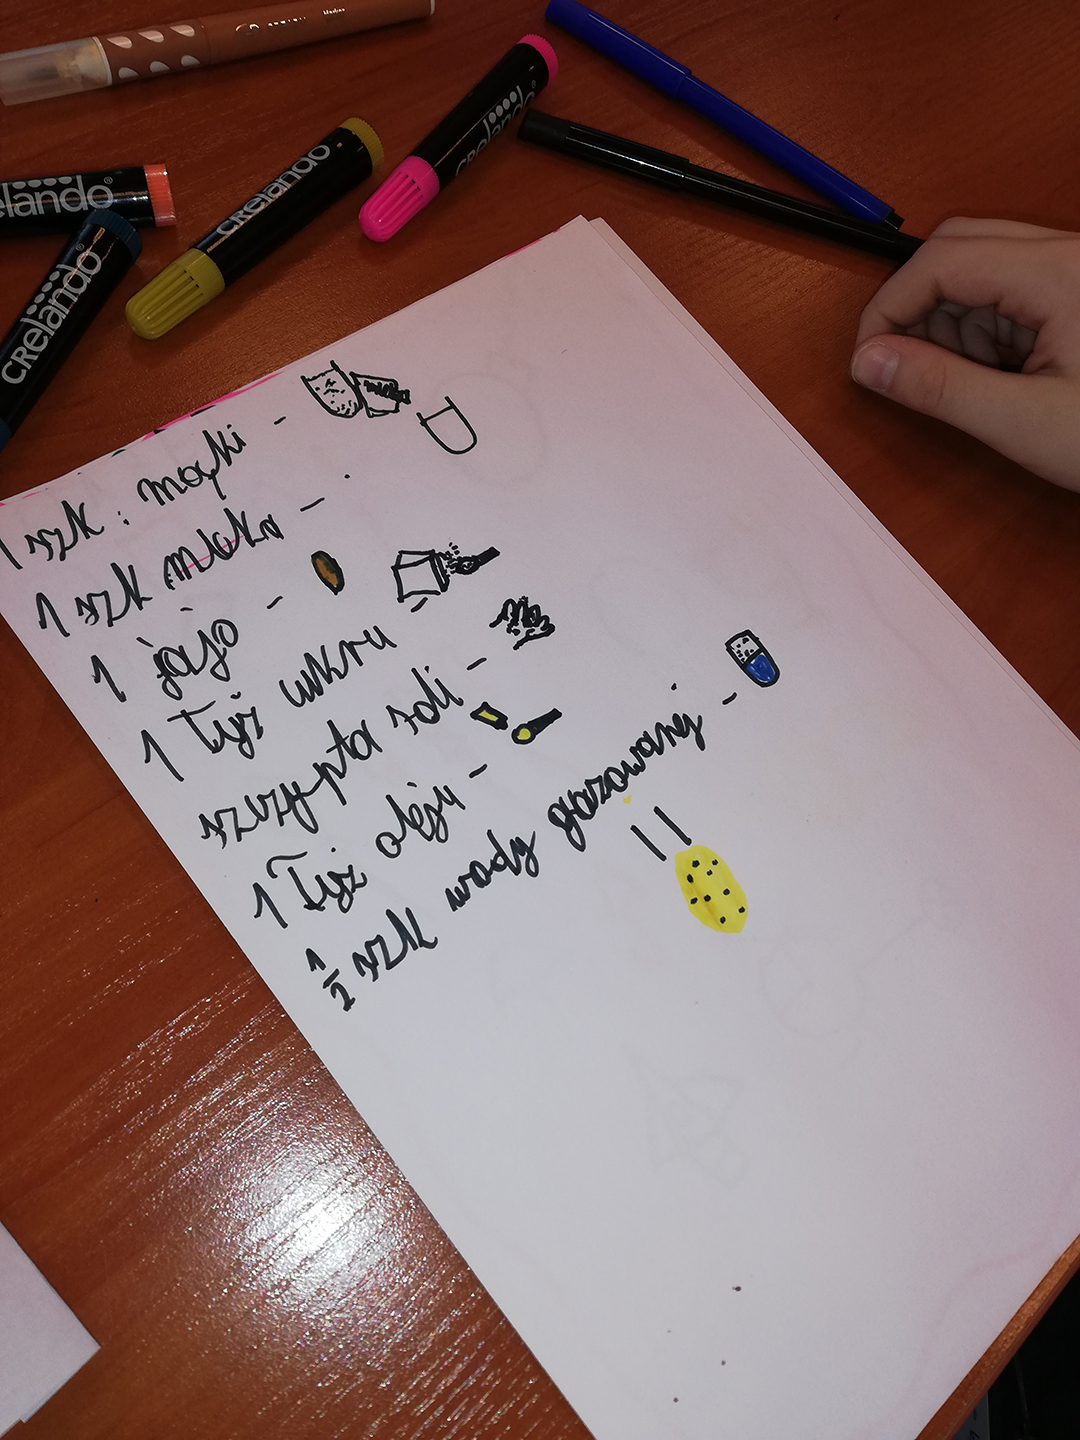 Marker
CRelando
CRelando
elando
CRelando
1 szk. mąki -
1 szk mleka -
1 jajo -
1 łyż cukru -
szczypta soli -
1 Tyż oleju -
1/2 szk wody gazowanej -